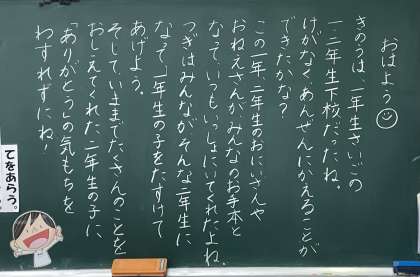 おはよう☺
きのうは、一年生さいごの
一、二年生下校だったね。
けがなく、あんぜんにかえることが
できたかな?
この一年、二年生のおにいさんや
おねえさんが、みんなのお手本と
なって、いつもいっしょにいてくれたよね。
つぎはみんなが、そんな二年生に
なって、一年生の子をたすけて
あげよう。
そして、いままでたくさんのことを
おしえてくれた、二年生の子に、
「ありがとう」の気もちを
わすれずにね!
てをあらう。